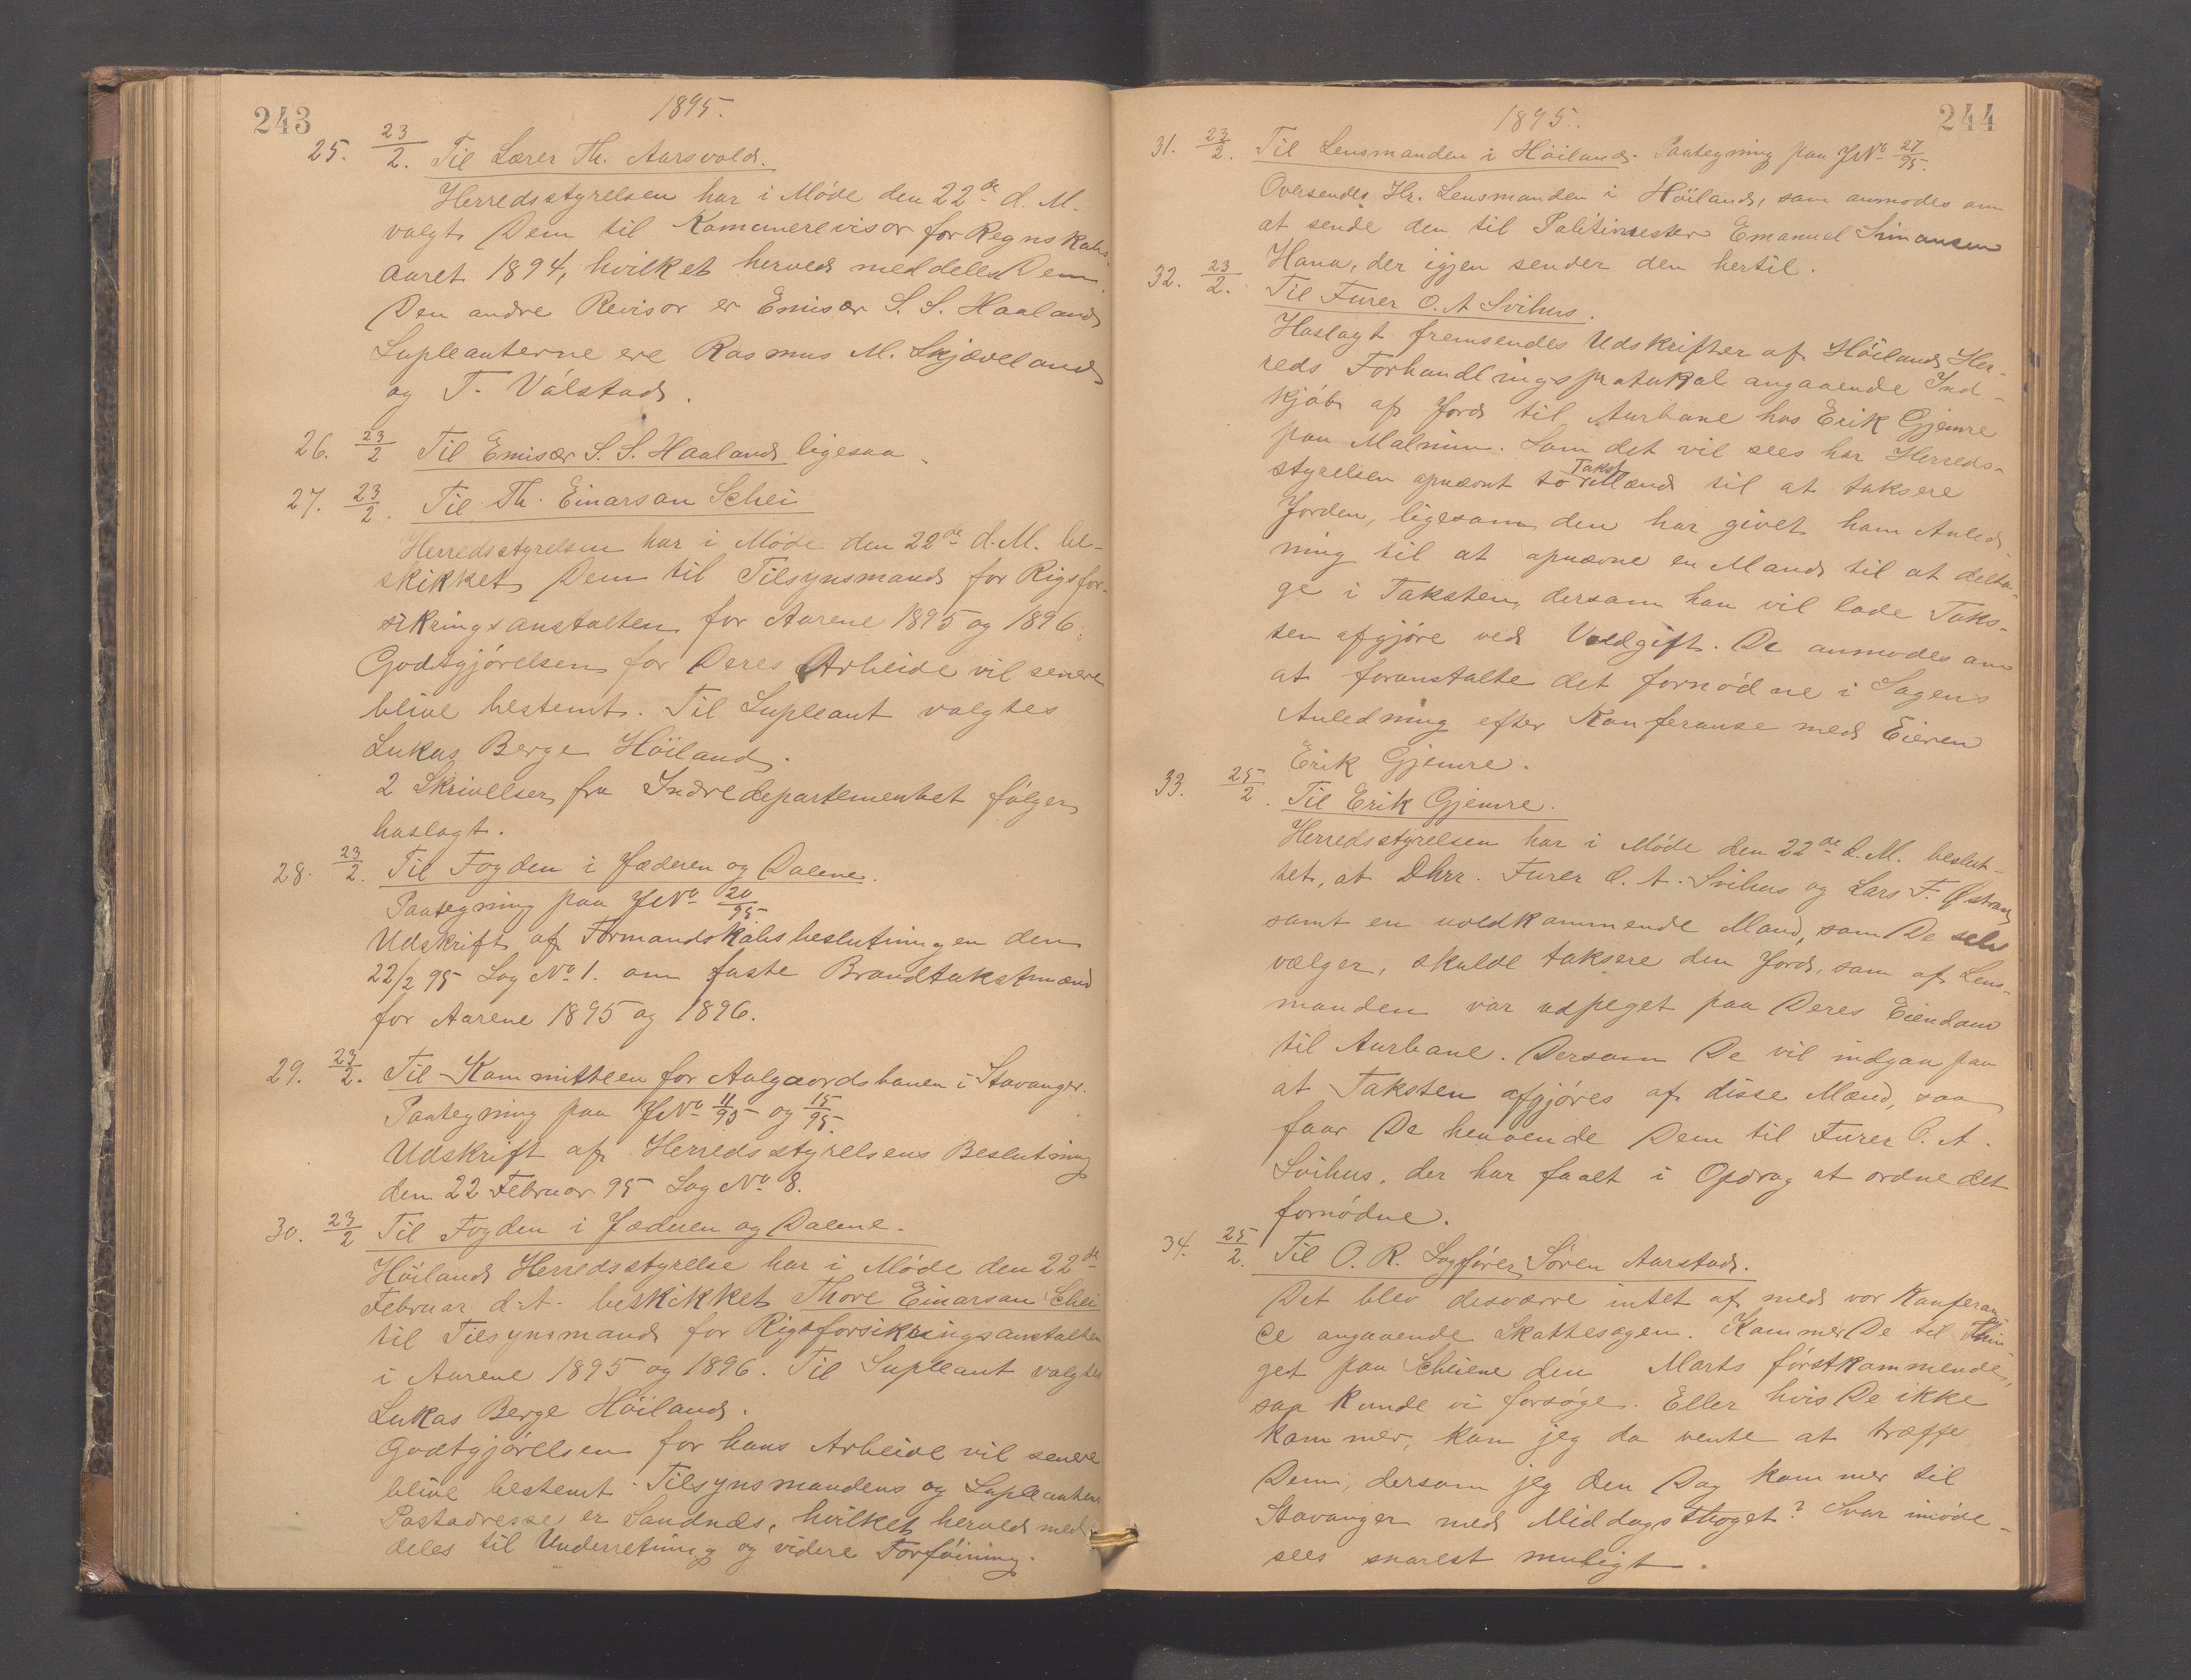 243
1895.
25. 23/2. Til Lærer Th. Aarsvold.
Herredsstyrelsen har i Møde den 22de d. M.
valgt Dem til Kommunerevisor for Regnskabs-
aaret 1894, hvilket herved meddeles Dem.
Den andre Revisor er Emisær S. S. Haaland
Supleanterne ere Rasmus M. Skjæveland
og T. Válstad.
26. 23/2 Til Emisær S. S. Haaland ligesaa.
27. 23/2. Til Th. Einarson Schei
Herredsstyrelsen har i Møde den 22de d. M. be-
skikket Dem til Tilsynsmand for Rigsfor-
sikringsanstalten for Aarene 1895 og 1896.
Godtgjørelsen for Deres Arbeide vil senere
blive bestemt. Til Supleant valgtes
Lukas Berge Höiland.
2 Skrivelser fra Indredepartementet følger
hoslagt.
28. 23/2. Til Fogden i Jæderen og Dalene.
Paategning paa JNo 20/95.
Udskrift af Formandskabsbeslutningen den
22/2 95 Sag No 1. om faste Brandtakstmænd
for Aarene 1895 og 1896.
29. 23/2. Til Kommitteen for Aalgaardsbanen i Stavanger.
Paategning paa JNo 11/95 og 15/95.
Udskrift af Herredsstyrelsens Beslutning
den 22 Februar 95 Sag No 8.
30. 23/2 Til Fogden i Jæderen og Dalene.
Höilands Herredsstyrelse har i Møde den 22de
Februar d. A. beskikket Thore Einarson Schei
til Tilsynsmand for Rigsforsikringsanstalten
i Aarene 1895 og 1896. Til Supleant valgtes
Lukas Berge Höiland.
Godtgjørelsen for hans Arbeide vil senere
blive bestemt. Tilsynsmandens og Supleantens
Postadresse er Sandnæs, hvilket herved med-
deles til Underretning og videre Forføining.
244
1895.
31. 23/2. Til Lensmanden i Höiland. Paategning paa JNo 27/95.
Oversendes Hr. Lensmanden i Höiland, som anmodes om
at sende den til Politimester Emanuel Simonsen
Hana, der igjen sender den hertil.
32. 23/2. Til Furer O. A Svihus.
Hoslagt fremsendes Udskrifter af Höiland Her-
reds Forhandlingsprotokol angaaende Ind-
kjøb af Jord til Aurbane hos Erik Gjemre
paa Malmim. Som det vil sees har Herreds-
styrelsen opnævnt to Takstmænd til at taksere
Jorden, ligesom den har givet ham Anled-
ning til at opnævne en Mand til at delta-
ge i Taksten, dersom han vil lade Taks-
ten afgjøre ved Voldgift. De anmodes om
at foranstalte det fornødne i Sagens
Anledning efter Konferanse med Eieren
Erik Gjemre.
33. 25/2. Til Erik Gjemre.
Herredsstyrelsen har i Møde den 22de d. M. beslut-
tet, at Dhrr. Furer O. A. Svihus og Lars F. Østraad
samt en uvedkommende Mand, som De selv
vælger, skulde taksere den Jord, som af Lens-
manden var udpeget paa Deres Eiendom
til Aurbane. Dersom De vil indgaa paa
at Taksten afgjøres af disse Mænd, saa
faar De henvende Dem til Furer O. A.
Svihus, der har faaet i Opdrag at ordne det
fornødne.
34. 25/2. Til O. R. Sagfører Søren Aarstad.
Det blev desværre intet af med vor Konferan-
ce angaaende Skattesagen. Kommer De til Thin-
get paa Scheiene den Marts førstkommende,
saa kunde vi forsøge. Eller hvis De ikke
kommer, kan jeg da vente at træffe
Dem, dersom jeg den Dag kommer til
Stavanger med Middagsthoget? Svar imøde-
sees snarest muligt.